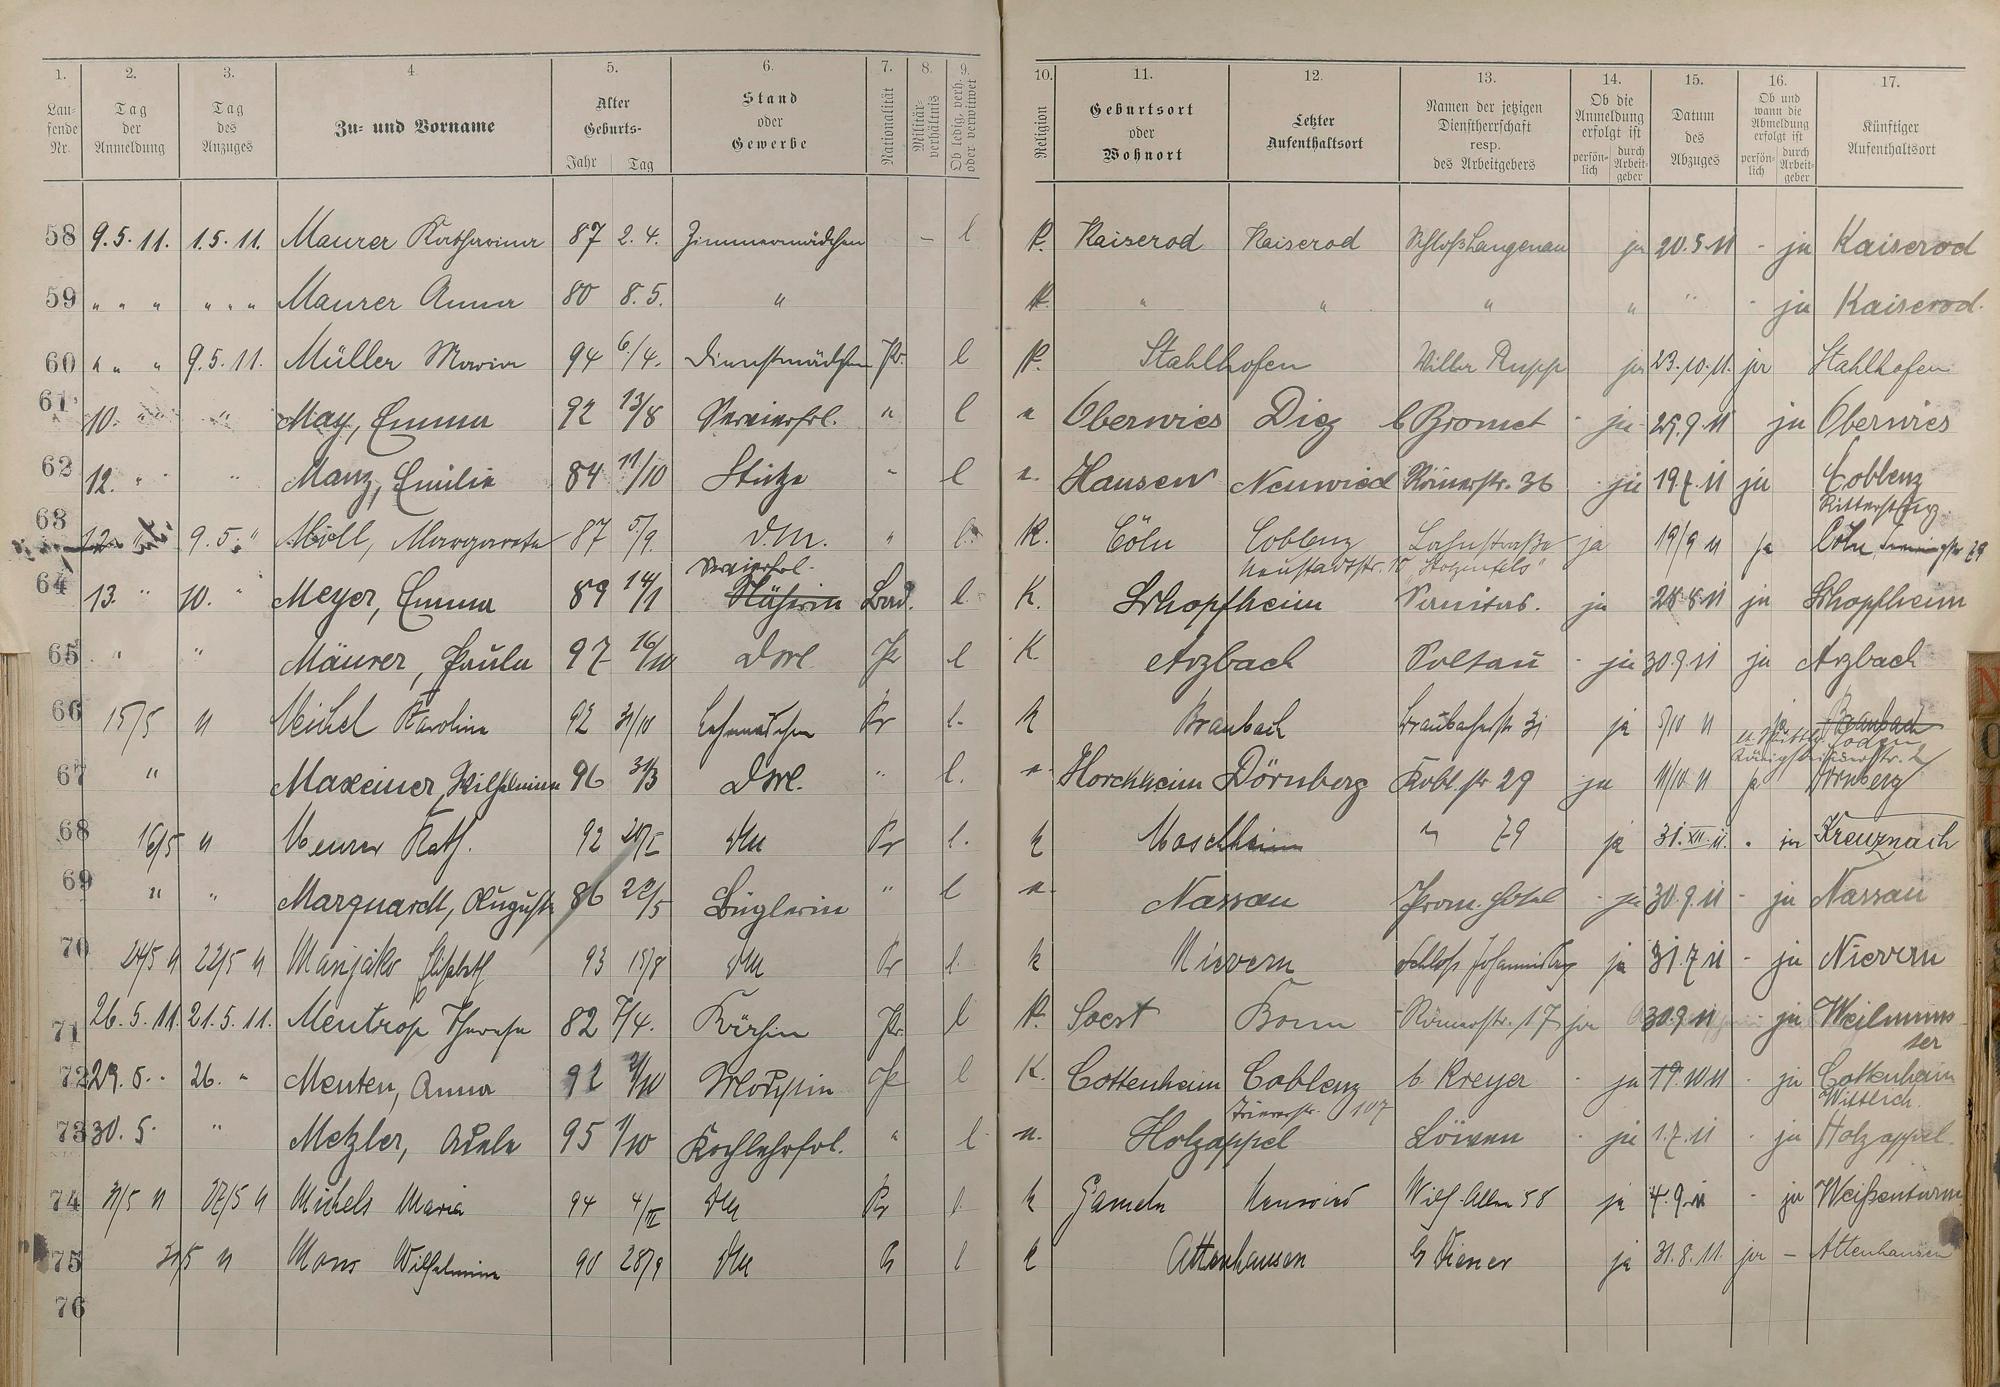 1. 2. 3. 4. 5. 6. 7. 8. 9. 10. 11. 12. 13. 14. 15. 16. 17.
Laufende Nr.
Tag der Anmeldung
Tag des Anzuges
Zu- und Vorname
Alter Geburts- Jahr Tag
Stand oder Gewerbe
Nationalität
Militärverhältnis
Ob ledig, verh. oder verwitwet
Religion
Geburtsort oder Wohnort
Letzter Aufenthaltsort
Namen der jetzigen Dienstherrschaft resp. des Arbeitgebers
Ob die Anmeldung erfolgt ist persönlich durch Arbeitgeber
Datum des Abzuges
Ob und wann die Abmeldung erfolgt ist persönlich durch Arbeitgeber
Künftiger Aufenthaltsort
58 9.5.11. 1.5.11. Maurer Katharina 87 2.4. Zimmermädchen – l K. Kaiserod Kaiserod Schloß Langenau ja 20.5.11 - ja Kaiserod
59 " " " " " " Maurer Anna 80 8.5. " K. " " " " " - ja Kaiserod.
60 " " " 9.5.11. Müller Maria 94 6./4. Dienstmädchen Pr. l K. Stahlhofen Rupp ja 23.10.11. ja Stahlhofen
61 10. " " " May, Emma 92 13/8 Servierfrl. " l " Oberwies Diez b Bromet - ja 25.9.11 ja Oberwies
62 12. " " " Manz, Emilie 84 11/10 Stütze " l ". Hausen Neuwied Römerstr. 36 - ja 19.7.11 ja Coblenz
63 12. " 9.5. " Moll, Margarete 87 5/9. D.M. " l K. Cöln Coblenz Neustadtstr. Lahnstraße ja 19/9 11 ja Cöln
64 13. " 10. " Meyer, Emma 89 14/1 Servierfrl. Näherin Bad. l. K. Schopfheim ja 28.8.11 ja Schopfheim
65 " " Mäurer, Paula 97 16/10 DM Pr l K. Arzbach Poltau - ja 30.9.11 ja Arzbach
66 15/5 11 Michel Karoline 92 31/10 Lehrmädchen Pr l. k Braubach Braubacherstr 31 ja 5/10 11 ja Braubach
67 " Maxeiner, Wilhelmine 96 31/3 DM. " l. " Horchheim Dörnberg Kobl. str 29 ja 11/10 11 ja Dörnberg
68 16/5 11 Meurer Kath. 92 DM Pr l. k Moschheim " 29 ja 31.XII.11. - ja Kreuznach
69 " " Marquardt, Auguste 86 22/5 Büglerin " l " Nassau Prom. Hotel - ja 30.9.11 - ja Nassau
70 24/5 11 22/5 11 Elisabeth 93 15/8 DM Pr l. k Nievern Schloß Johannisberg ja 31.7.11 - ja Nievern
71 26.5.11. 21.5.11. Mentrop Therese 82 7/4. Köchin Pr. l K. Soest Bonn Römerstr. 17 ja 30.9.11 - ja Weilmünster
72 29.5. " 26. " Menten, Anna 92 Pr l K. Cottenheim Coblenz Trierstr. 107 b. Kreyer - ja 19.10.11 - ja Cottenheim Wittlich.
73 30.5. " Metzler, Adele 95 1/10 Kochlehrfrl. " l ". Holzappel Löwen - ja 1.7.11 - ja Holzappel.
74 31/5 11 27/5 11 Michels Maria 94 4/III DM Pr l. k Gameln Neuwied Wilh. Allee 58 ja 4.9.11 - ja Weißenturm
75 31/5 11 Maus Wilhelmine 90 28/9 DM Pr l k Attenhausen b Diener ja 31.8.11. ja – Attenhausen
76